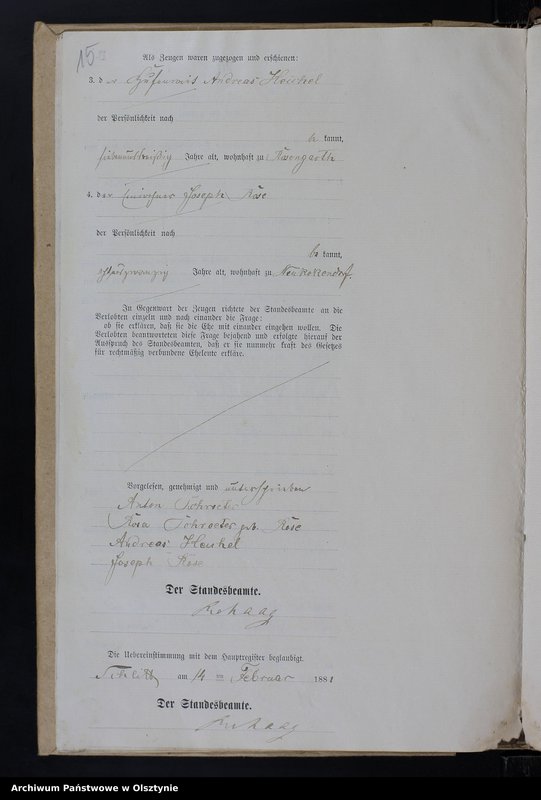 15
Als Zeugen waren zugezogen und erschienen:
3. der Andreas Heukel
der Persönlichkeit nach
be kannt,
siebenunddreißig Jahre alt, wohnhaft zu Rosengarth
4. der Joseph Röse
der Persönlichkeit nach
be kannt,
Jahre alt, wohnhaft zu Neukokendorf.
In Gegenwart der Zeugen richtete der Standesbeamte an die
Verlobten einzeln und nach einander die Frage:
ob sie erklären, daß sie die Ehe mit einander eingehen wollen. Die
Verlobten beantworteten diese Frage bejahend und erfolgte hierauf der
Ausspruch des Standesbeamten, daß er sie nunmehr kraft des Gesetzes
für rechtmäßig verbundene Eheleute erkläre.
Vorgelesen, genehmigt und unterschrieben
Anton Schroeter
Rosa Schroeter geb. Röse
Andreas Heukel
Joseph Röse
Der Standesbeamte.
Rehaag
Die Uebereinstimmung mit dem Hauptregister beglaubigt.
am 14 ten Februar 1881
Der Standesbeamte.
Rehaag
Archiwum Państwowe w Olsztynie